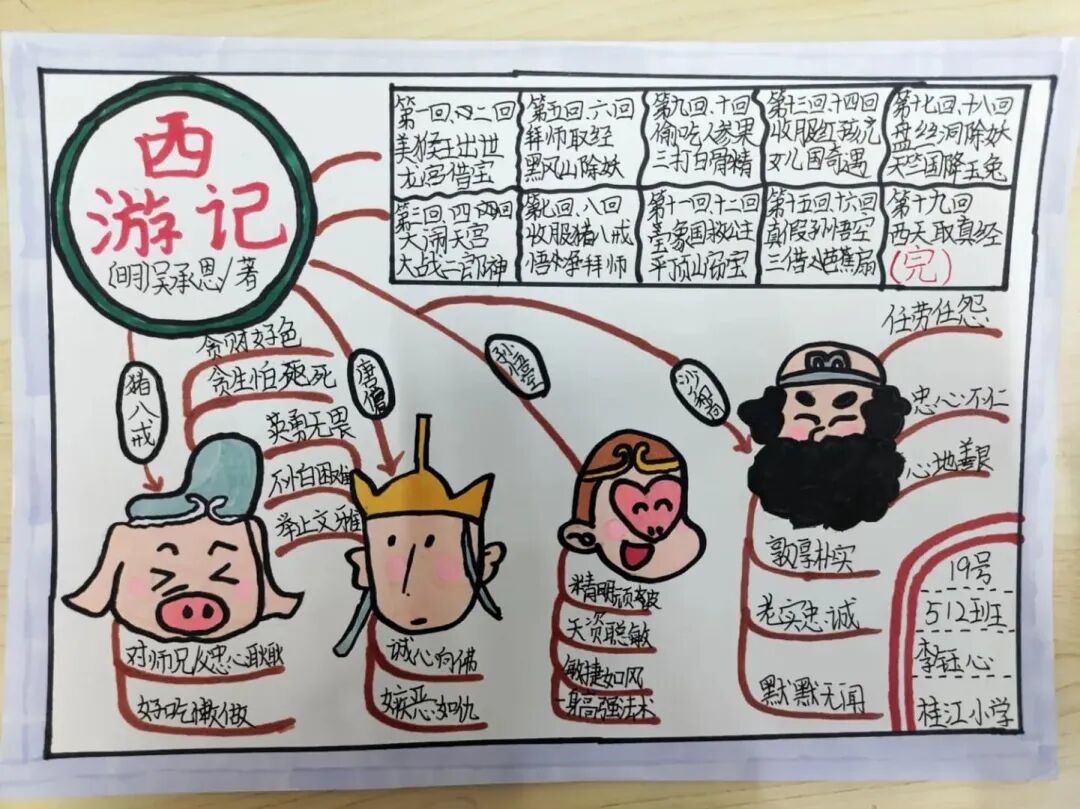 西
游记
(明)吴承恩/著
第一回、二回
美猴王出世
龙宫借宝
第五回、六回
拜师取经
黑风山除妖
第九回、十回
偷吃人参果
三打白骨精
第十三回十四回
收服红孩儿
女儿国奇遇
第十七回、十八回
盘丝洞除妖
天竺国降玉兔
第三回、四回
大闹天宫
大战二郎神
第七回、八回
收服猪八戒
悟净拜师
第十一回、十二回
宝象国救公主
平顶山窃宝
第十五回、十六回
真假孙悟空
三借芭蕉扇
第十九回
西天取真经
(完)
猪八戒
贪财好色
贪生怕死
英勇无畏
不怕困难
举止文雅
对师兄父忠心耿耿
好吃懒做
唐僧
诚心向佛
嫉恶如仇
孙悟空
精明顽皮
天资聪敏
敏捷如风
身高强法术
沙和尚
任劳任怨
忠心不仁
心地善良
敦厚朴实
老实忠诚
默默无闻
19号
512班
李钰心
桂江小学